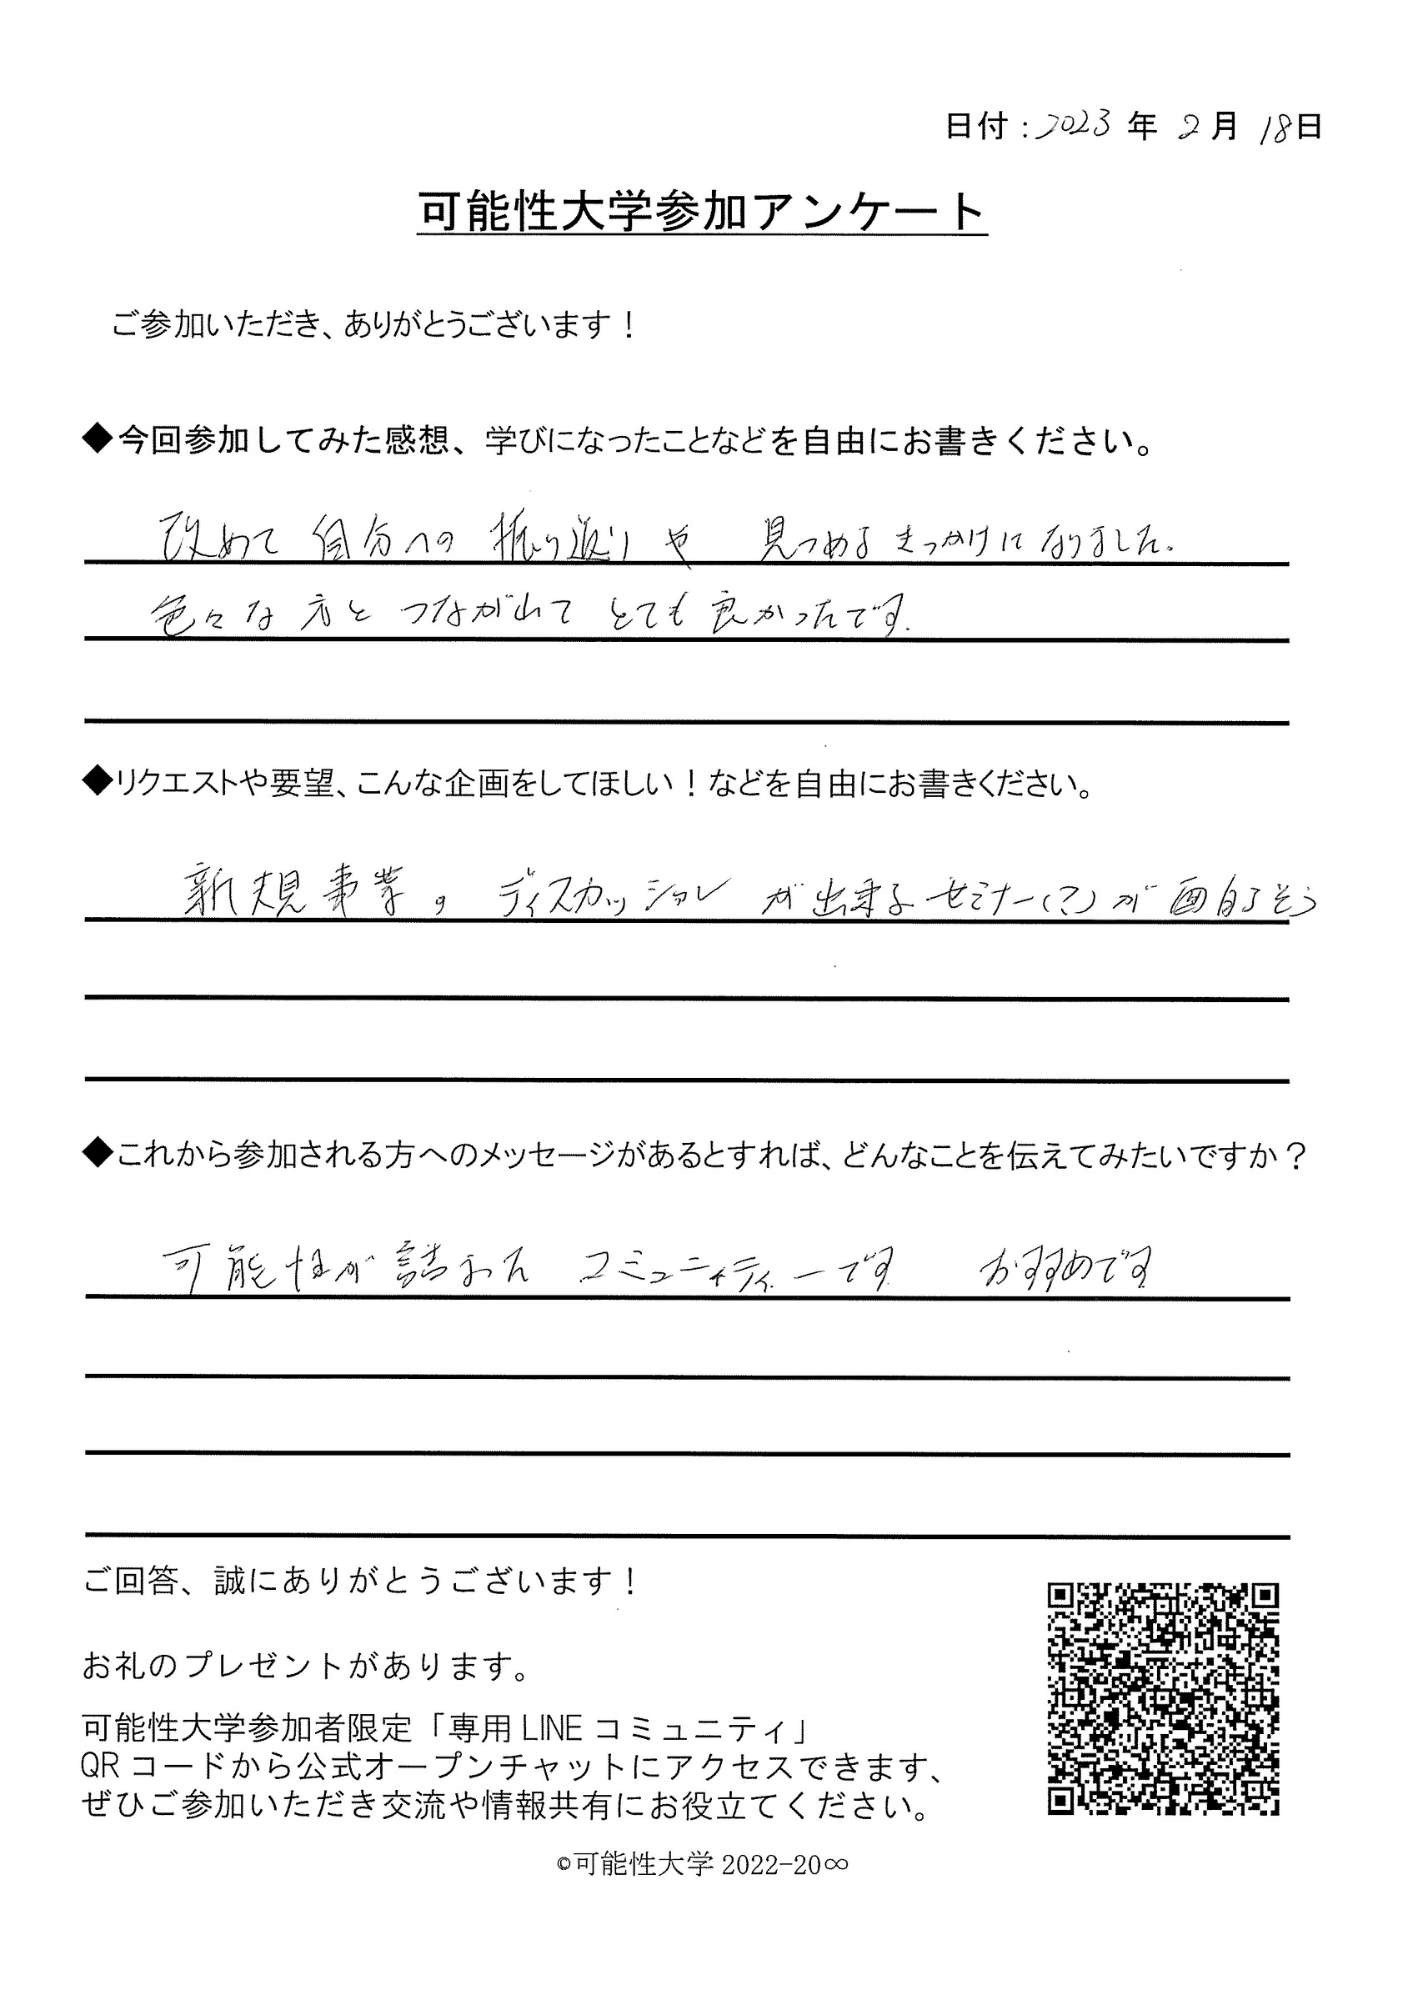 日付：2023 年 2 月 18日
可能性大学参加アンケート
ご参加いただき、ありがとうございます！
◆今回参加してみた感想、学びになったことなどを自由にお書きください。
改めて 自分への 振り返り や 見つめる きっかけに なりました.
色々な 方と つながれて とても 良かったです.
◆リクエストや要望、こんな企画をしてほしい！などを自由にお書きください。
新規事業の ディスカッション が出来る セミナー(?)が 面白そう
◆これから参加される方へのメッセージがあるとすれば、どんなことを伝えてみたいですか？
可能性が 詰まった コミュニティーです おすすめです
ご回答、誠にありがとうございます！
お礼のプレゼントがあります。
可能性大学参加者限定「専用 LINE コミュニティ」
QR コードから公式オープンチャットにアクセスできます、
ぜひご参加いただき交流や情報共有にお役立てください。
©可能性大学 2022-20∞